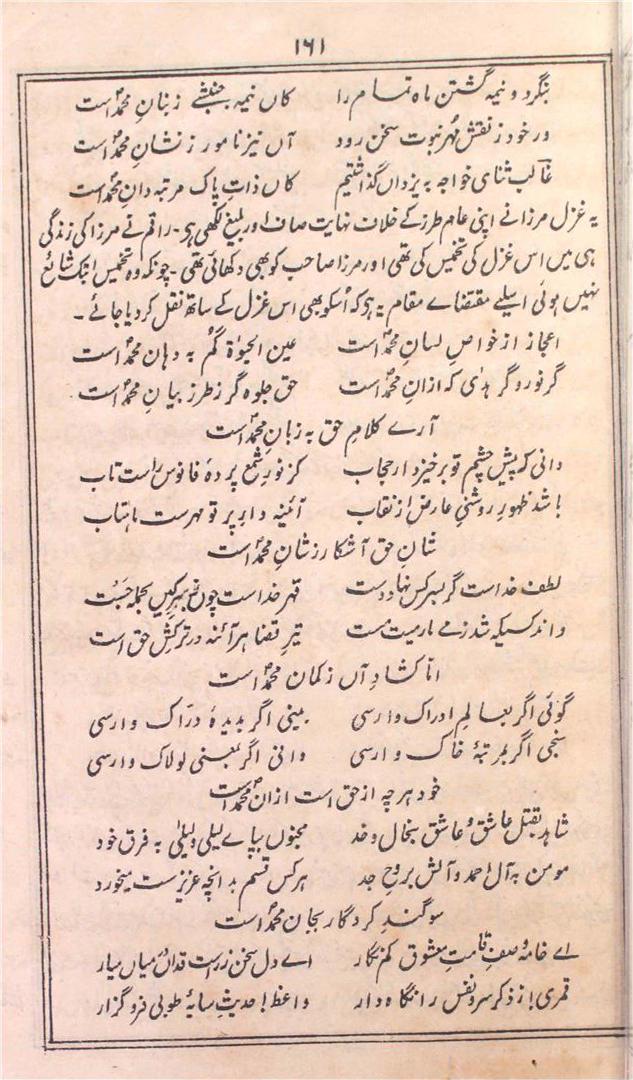 ۱۶۱
بنگر دو نیمہ گشتن ماہ تمام را کاں نیمہ جنبشے ز بنانِ محمدؐ است
ور خود ز نقش مُہر نبوت سخن رود آں نیز نامور ز نشانِ محمدؐ است
غالب ثنای خواجہ بہ یزداں گذاشتیم کاں ذاتِ پاک مرتبہ دانِ محمدؐ است
یہ غزل مرزا نے اپنی عام طرز کے خلاف نہایت صاف اور بلیغ لکھی ہی۔ راقم نے مرزا کی زندگی
ہی میں اس غزل کی تخمیس کی تھی اور مرزا صاحب کو بھی دکھائی تھی۔ چونکہ وہ تخمیس ابتک شائع
نہیں ہوئی اسیلے مقتضاے مقام یہ ہی کہ اُسکو بھی اس غزل کے ساتھ نقل کر دیا جائے۔
اعجاز از خواصِ لسانِ محمدؐ است عین الحیوٰۃ گُم بہ دہانِ محمدؐ است
گر نور و گر ہدٰی کہ ازانِ محمدؐ است حق جلوہ گر ز طرزِ بیانِ محمدؐ است
آرے کلامِ حق بہ زبانِ محمدؐ است
دانی کہ پیش چشم تو برخیزد ار حجاب کز نورِ شمع پردۂ فانوس راست تاب
باشد ظہورِ روشنیِ عارض از نقاب آئینہ دارِ پرتوِ مہرست ماہتاب
شانِ حق آشکار ز شانِ محمدؐ است
لطف خداست گر بسرِ کس نہاد دست قہر خداست چوں بہرِ کیں بحملہ جَست
داند کسیکہ شد ز مے مارمیت مست تیرِ قضا ہر آئنہ در ترکشِ حق است
امّا کشادِ آں ز کمانِ محمدؐ است
گوئی اگر بعالمِ ادراک وارسی بینی اگر بدیدۂ درّاک وارسی
سنجی اگر بمرتبۂ خاک وارسی دانی اگر بمعنیِ لولاک وارسی
خود ہرچہ از حق است ازانِ محمدؐ است
شاہد بقتلِ عاشق و عاشق بخال و خد مجنوں بپاے لیلی و لیلیٰ بہ فرقِ خود
مومن بہ آلِ احمد و آلش بروحِ جد ہر کس قسم بدانچہ عزیزست میخورد
سوگندِ کردگار بجانِ محمدؐ است
اے خامہ وصفِ قامتِ معشوق کم نگار اے دل سخن ز راستِ قداں میاں میار
قمری از ذکرِ سرو نفس را نگاہ دار واعظ حدیثِ سایۂ طوبٰی فروگزار